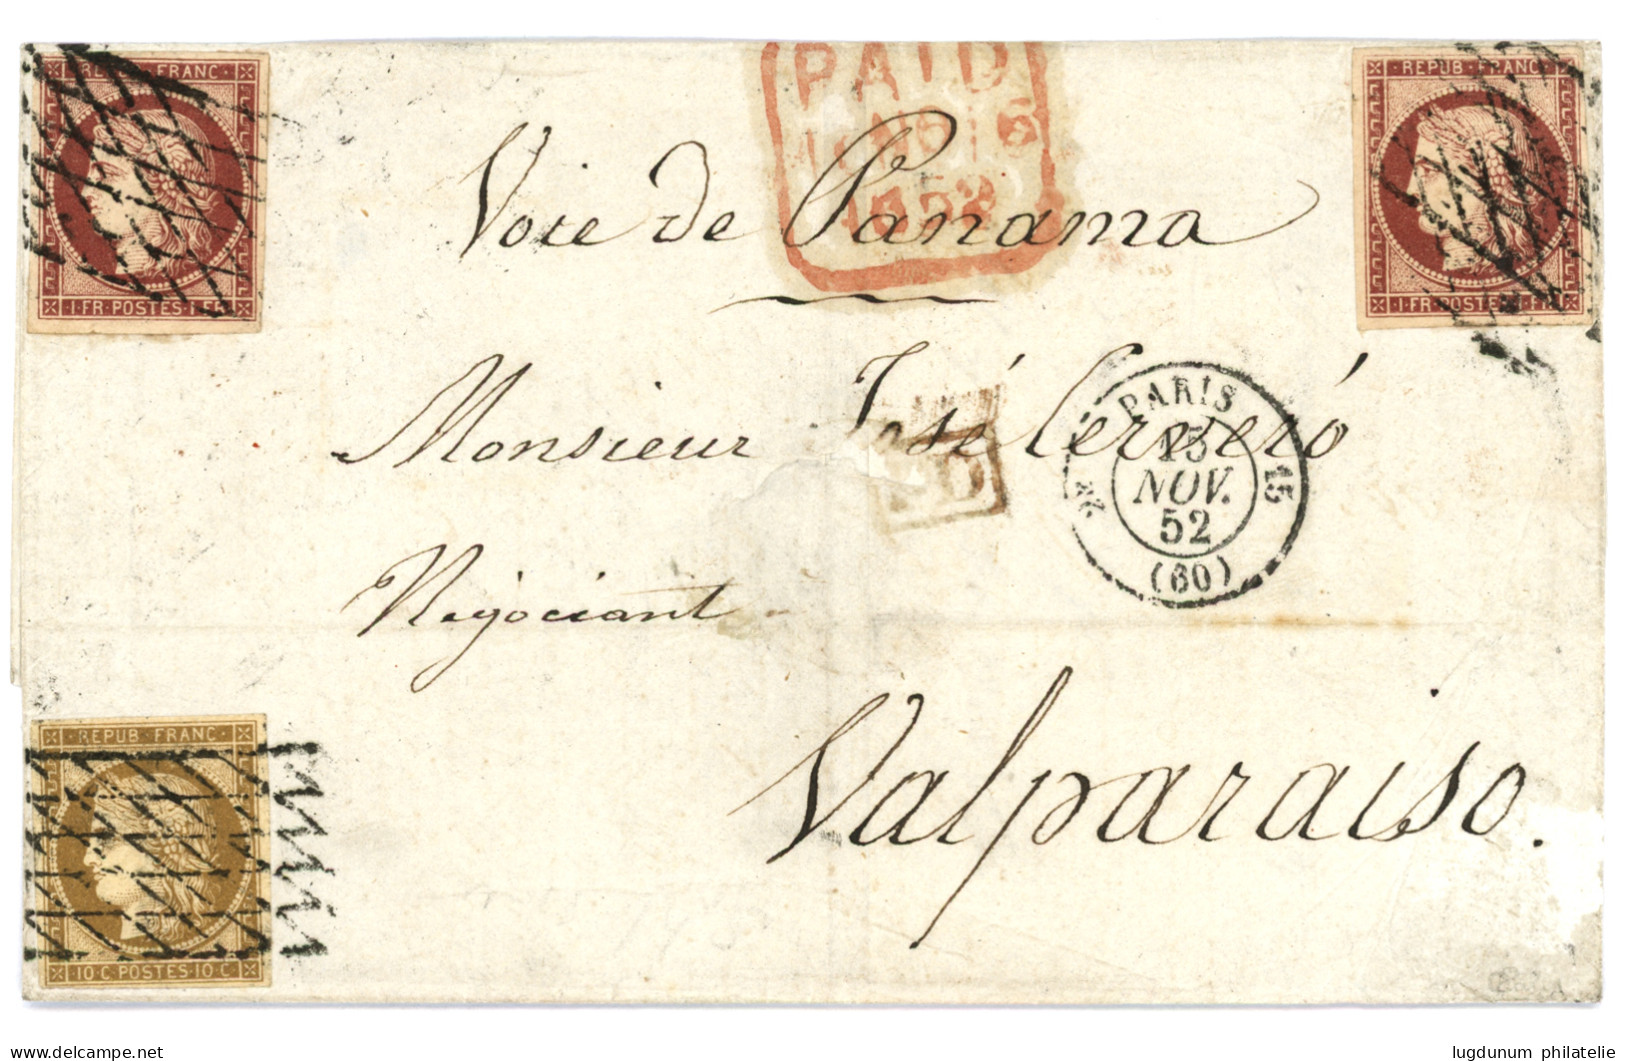 REPUB FRANC
1 FR POSTES 1 FR
PAID
1852
REPUB · FRANC
1 FR · POSTES · 1 FR
Voie de Panama
Monsieur José Cerveró
PD
PARIS
15
15
NOV.
52
(60)
Négociant
Valparaiso.
REPUB FRANC
10 · C · POSTES · 10 · C
www.delcampe.net
lugdunum philatelie